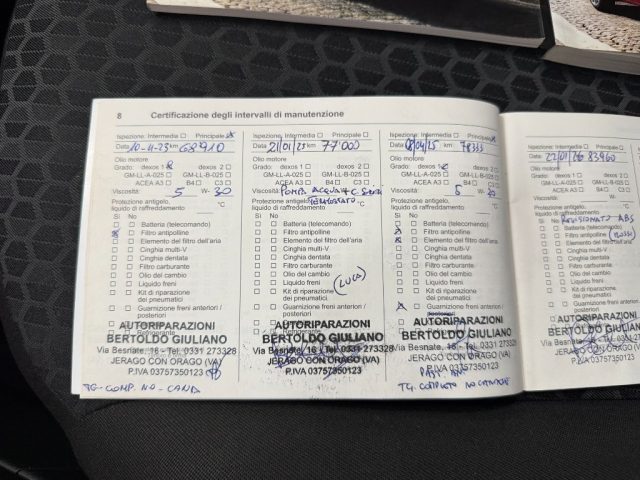 8 Certificazione degli intervalli di manutenzione
Ispezione: Intermedia Principale
Data 10-4-23 km 68910
Olio motore
Grado: dexos 1 dexos 2
GM-LL-A-025 GM-LL-B-025
ACEA A3 B4 C3
Viscosità: 5 W- 30
Protezione antigelo
liquido di raffreddamento °C
Sì No
Batteria (telecomando)
Filtro antipolline
Elemento del filtro dell'aria
Cinghia multi-V
Cinghia dentata
Filtro carburante
Olio del cambio
Liquido freni
Kit di riparazione
dei pneumatici
Guarnizione freni anteriori /
posteriori
AUTORIPARAZIONI
BERTOLDO GIULIANO
Via Besnate, 16 - Tel. 0331 273328
JERAGO CON ORAGO (VA)
P.IVA 03757350123
TG. COMP. NO - CAND
Ispezione: Intermedia Principale
Data 21/01/25 km 77'000
Olio motore
Grado: dexos 1 dexos 2
GM-LL-A-025 GM-LL-B-025
ACEA A3 B4 C3
Viscosità: POMPA ACQUA +
Protezione antigelo TERMOSTATO
liquido di raffreddamento °C
Sì No
Batteria (telecomando)
Filtro antipolline
Elemento del filtro dell'aria
Cinghia multi-V
Cinghia dentata
Filtro carburante
Olio del cambio
Liquido freni (LUCA)
Kit di riparazione
dei pneumatici
Guarnizione freni anteriori /
posteriori
Refrigerante
AUTORIPARAZIONI
BERTOLDO GIULIANO
Via Besnate, 16 - Tel. 0331 273328
JERAGO CON ORAGO (VA)
P.IVA 03757350123
Ispezione: Intermedia Principale
Data 08/04/25 km 78333
Olio motore
Grado: dexos 1 dexos 2
GM-LL-A-025 GM-LL-B-025
ACEA A3 B4 C3
Viscosità: 5 W- 30
Protezione antigelo
liquido di raffreddamento °C
Sì No
Batteria (telecomando)
Filtro antipolline
Elemento del filtro dell'aria
Cinghia multi-V
Cinghia dentata
Filtro carburante
Olio del cambio
Liquido freni
Kit di riparazione
dei pneumatici
Guarnizione freni anteriori /
AUTORIPARAZIONI
BERTOLDO GIULIANO
Via Besnate, 16 - Tel. 0331 273328
JERAGO CON ORAGO (VA)
P.IVA 03757350123
PAST. ANT
TG. COMPLETO NO CANDELE
Ispezione: Intermedia
Data 22/01/26 83960
Olio motore
Grado: dexos 1
GM-LL-A-025
ACEA A3
Viscosità:
Protezione antigelo
liquido di raffreddamento
Sì No REVISIONATO ABS
Batteria (telecomando)
Filtro antipolline
Elemento del filtro
Cinghia multi-V
Cinghia dentata
Filtro carburante
Olio del cambio
Liquido freni
Kit di riparazione
dei pneumatici
Guarnizione freni
posteriori